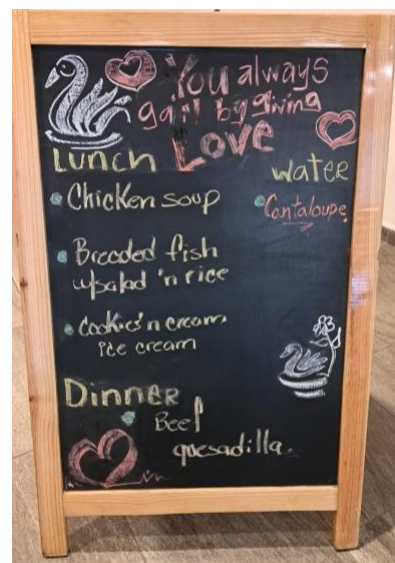 You always
gain by giving
Love
Lunch
Chicken soup
Breaded fish
w/salad 'n rice
Cookies'n cream
ice cream
water
Cantaloupe
Dinner
Beef
quesadilla.